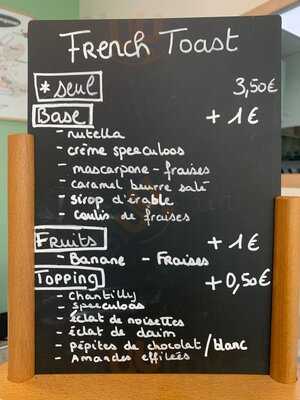 French Toast
*seul 3,50€
Base +1€
- nutella
- crème speculoos
- mascarpone - fraises
- caramel beurre salé
- sirop d'érable
- coulis de fraises
Fruits +1€
- Banane - Fraises
Topping +0,50€
- Chantilly
- Speculoos
- éclat de noisettes
- éclat de daim
- pépites de chocolat/blanc
- Amandes effilées